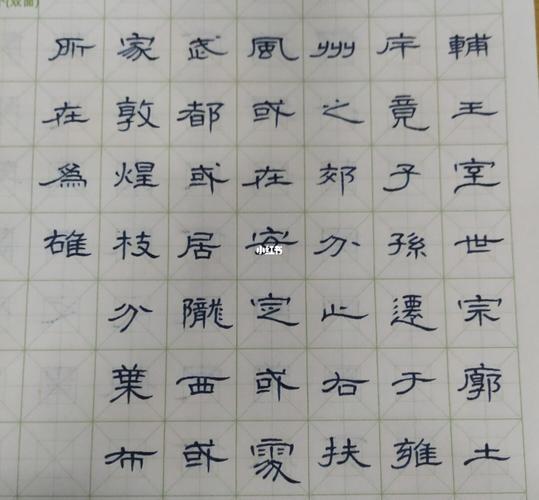 (双面)
輔王室世宗廓土
斥竟子孫遷于雍
州之郊分止右扶
風或在安定或處
武都或居隴西或
家敦煌枝分葉布
所在爲雄
小红书